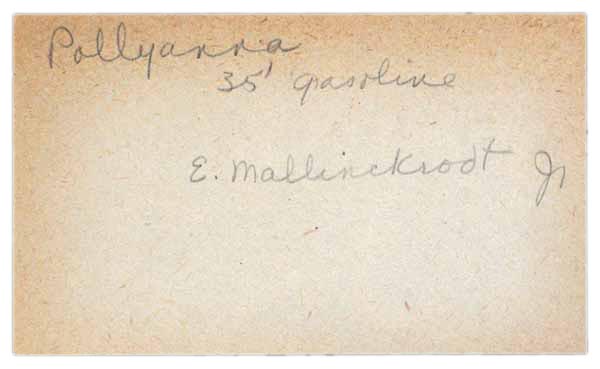 Pollyanna
35' gasoline
E. Mallinckrodt Jr